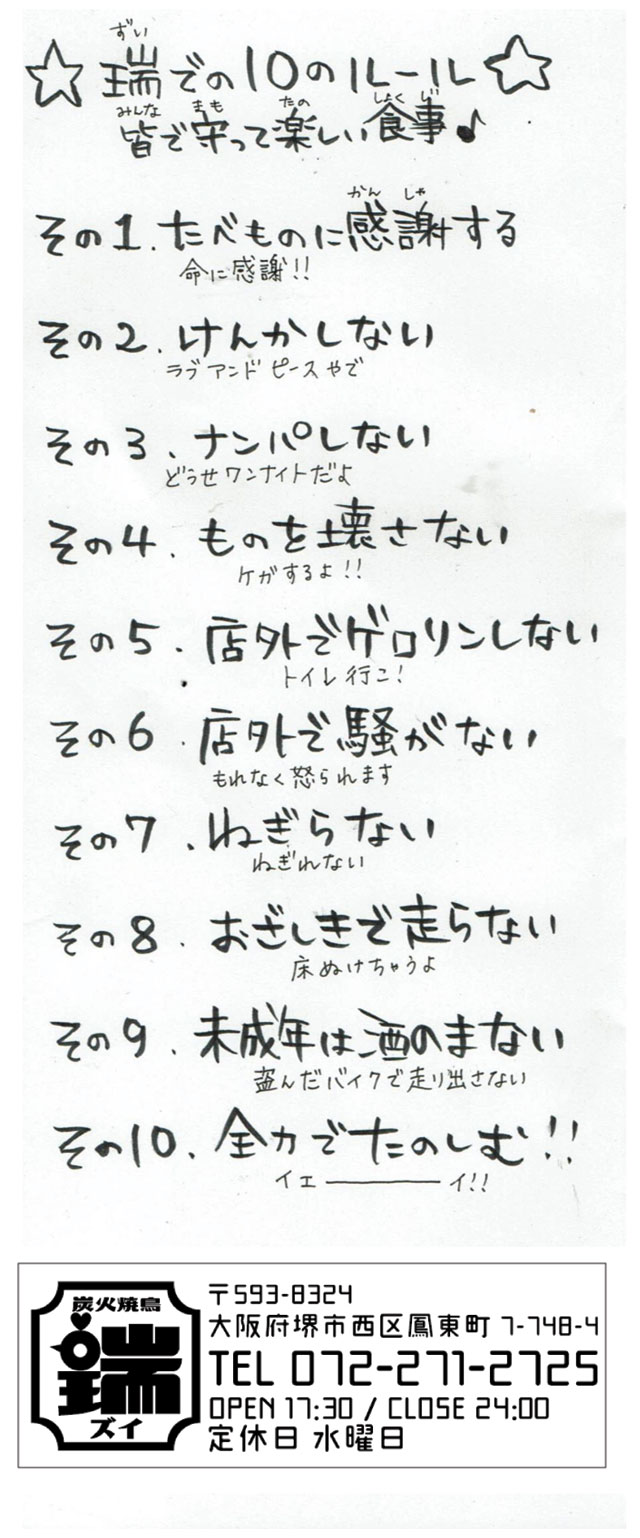 ☆瑞での10のルール☆
皆で守って楽しい食事♪
その1.たべものに感謝する
命に感謝!!
その2.けんかしない
ラブアンドピースやで
その3.ナンパしない
どうせワンナイトだよ
その4.ものを壊さない
ケガするよ!!
その5.店外でゲロリンしない
トイレ行こ!
その6.店外で騒がない
もれなく怒られます
その7.ねぎらない
ねぎれない
その8.おざしきで走らない
床ぬけちゃうよ
その9.未成年は酒のまない
盗んだバイクで走り出さない
その10.全力でたのしむ!!
イェーーーイ!!
炭火焼鳥
瑞
ズイ
〒593-8324
大阪府堺市西区鳳東町 7-748-4
TEL 072-271-2725
OPEN 17:30 / CLOSE 24:00
定休日 水曜日